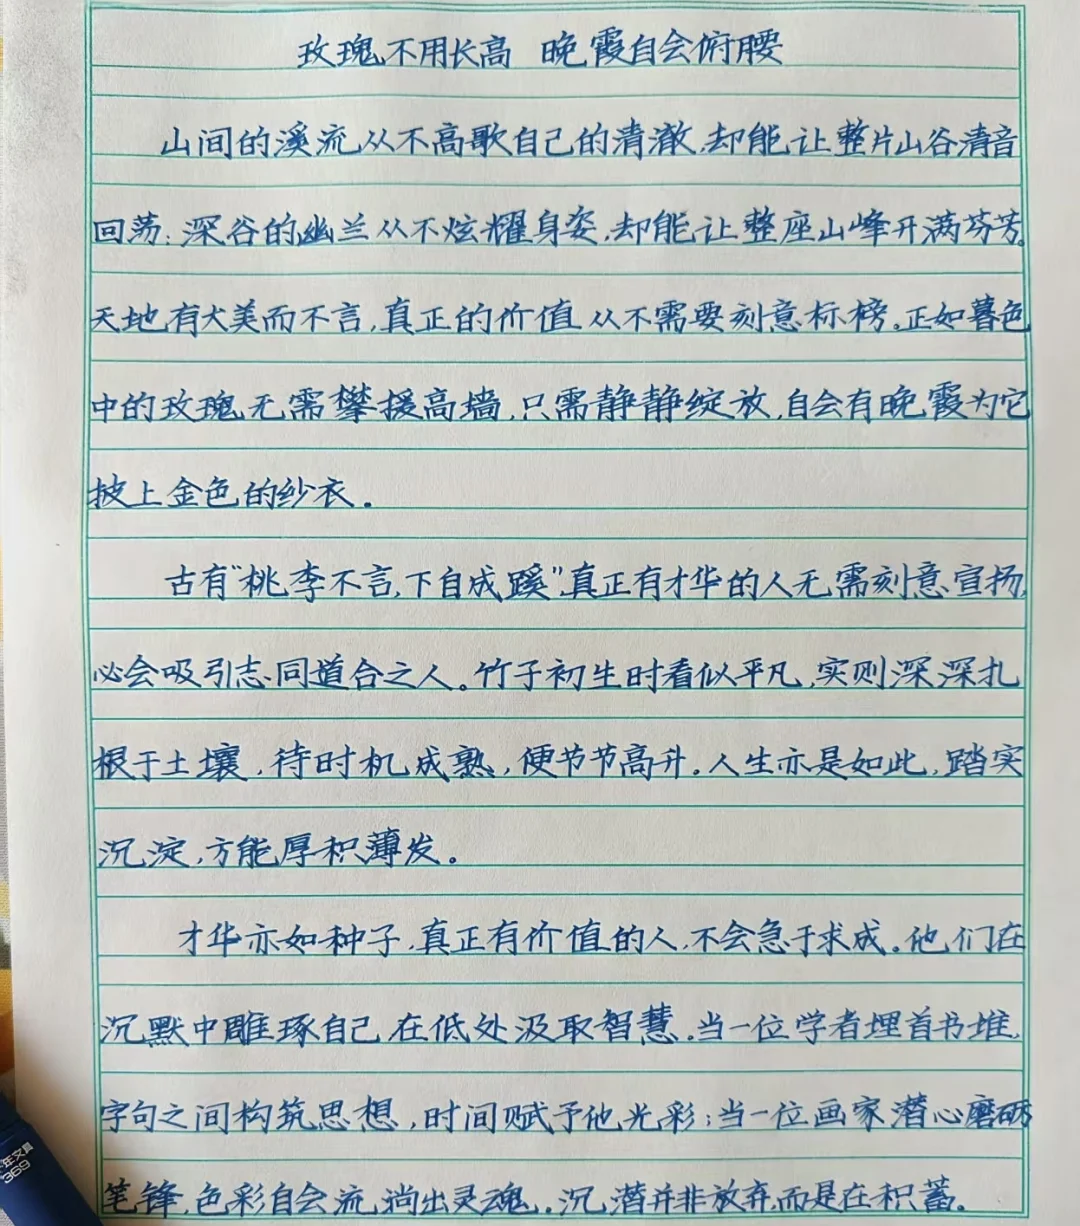 玫瑰不用长高 晚霞自会俯腰
山间的溪流从不高歌自己的清澈,却能让整片山谷清音
回荡;深谷的幽兰从不炫耀身姿,却能让整座山峰开满芬芳。
天地有大美而不言,真正的价值从不需要刻意标榜。正如暮色
中的玫瑰无需攀援高墙,只需静静绽放,自会有晚霞为它
披上金色的纱衣。
古有“桃李不言,下自成蹊”,真正有才华的人无需刻意宣扬,
必会吸引志同道合之人。竹子初生时看似平凡,实则深深扎
根于土壤,待时机成熟,便节节高升。人生亦是如此,踏实
沉淀,方能厚积薄发。
才华亦如种子,真正有价值的人,不会急于求成。他们在
沉默中雕琢自己,在低处汲取智慧。当一位学者埋首书堆,
字句之间构筑思想,时间赋予他光彩;当一位画家潜心磨砺
笔锋,色彩自会流淌出灵魂。沉潜并非放弃,而是在积蓄。
年文具
369